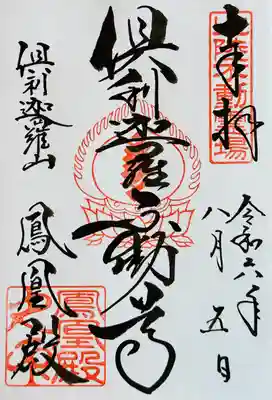 奉拝
令和六年
八月五日
倶利迦羅不動尊
倶利迦羅山
鳳凰殿
鳳凰殿